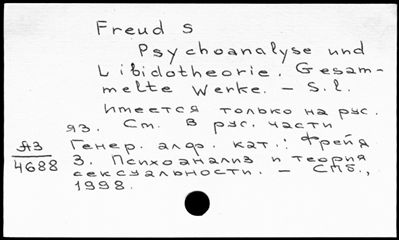 Freud S
Psychoanalyse und
Libidotheorie. Gesam-
melte Werke. – S.l.
Имеется только на рус.
яз. См. в рус. части
Генер. алф. кат.: Фрейд
З. Психоанализ и теория
сексуальности. – СПб.,
1998.
Я3
4688